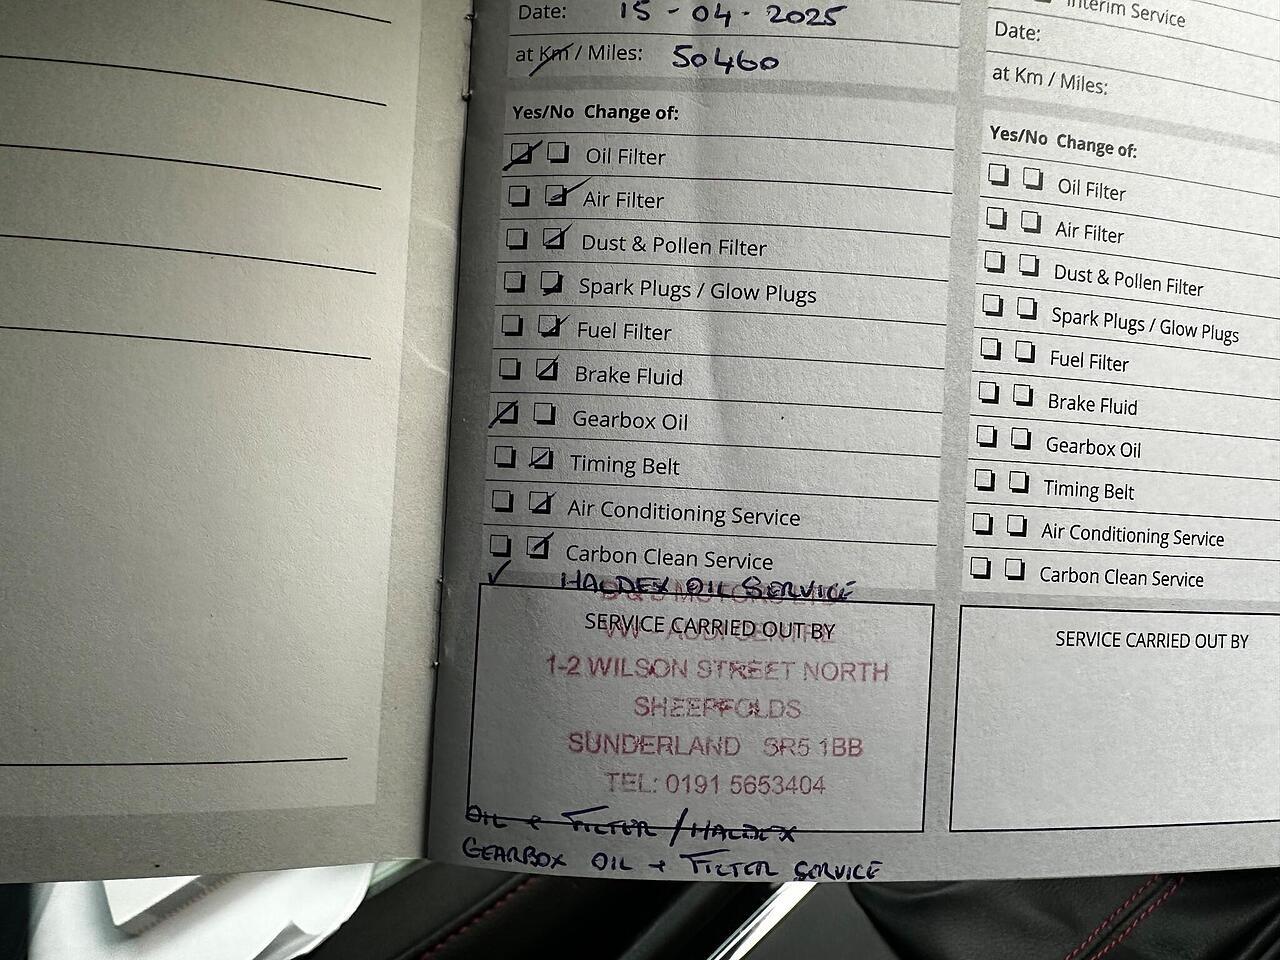 Date: 15-04-2025
at Km / Miles: 50460
Yes/No Change of:
Oil Filter
Air Filter
Dust & Pollen Filter
Spark Plugs / Glow Plugs
Fuel Filter
Brake Fluid
Gearbox Oil
Timing Belt
Air Conditioning Service
Carbon Clean Service
✓ HALDEX OIL SERVICE
SERVICE CARRIED OUT BY
1-2 WILSON STREET NORTH
SHEEPFOLDS
SUNDERLAND SR5 1BB
TEL: 0191 5653404
OIL + FILTER / HALDEX
GEARBOX OIL + FILTER SERVICE
Interim Service
Date:
at Km / Miles:
Yes/No Change of:
Oil Filter
Air Filter
Dust & Pollen Filter
Spark Plugs / Glow Plugs
Fuel Filter
Brake Fluid
Gearbox Oil
Timing Belt
Air Conditioning Service
Carbon Clean Service
SERVICE CARRIED OUT BY